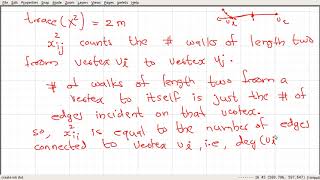 File Edit View Journal Tools Options Help
trace(X²) = 2m
vi vj
x²ij counts the # walks of length two
from vertex vi to vertex vj.
# of walks of length two from a
vertex to itself is just the # of
edges incident on that vertex.
so, x²ii is equal to the number of edges
connected to vertex vi, i.e, deg(vi